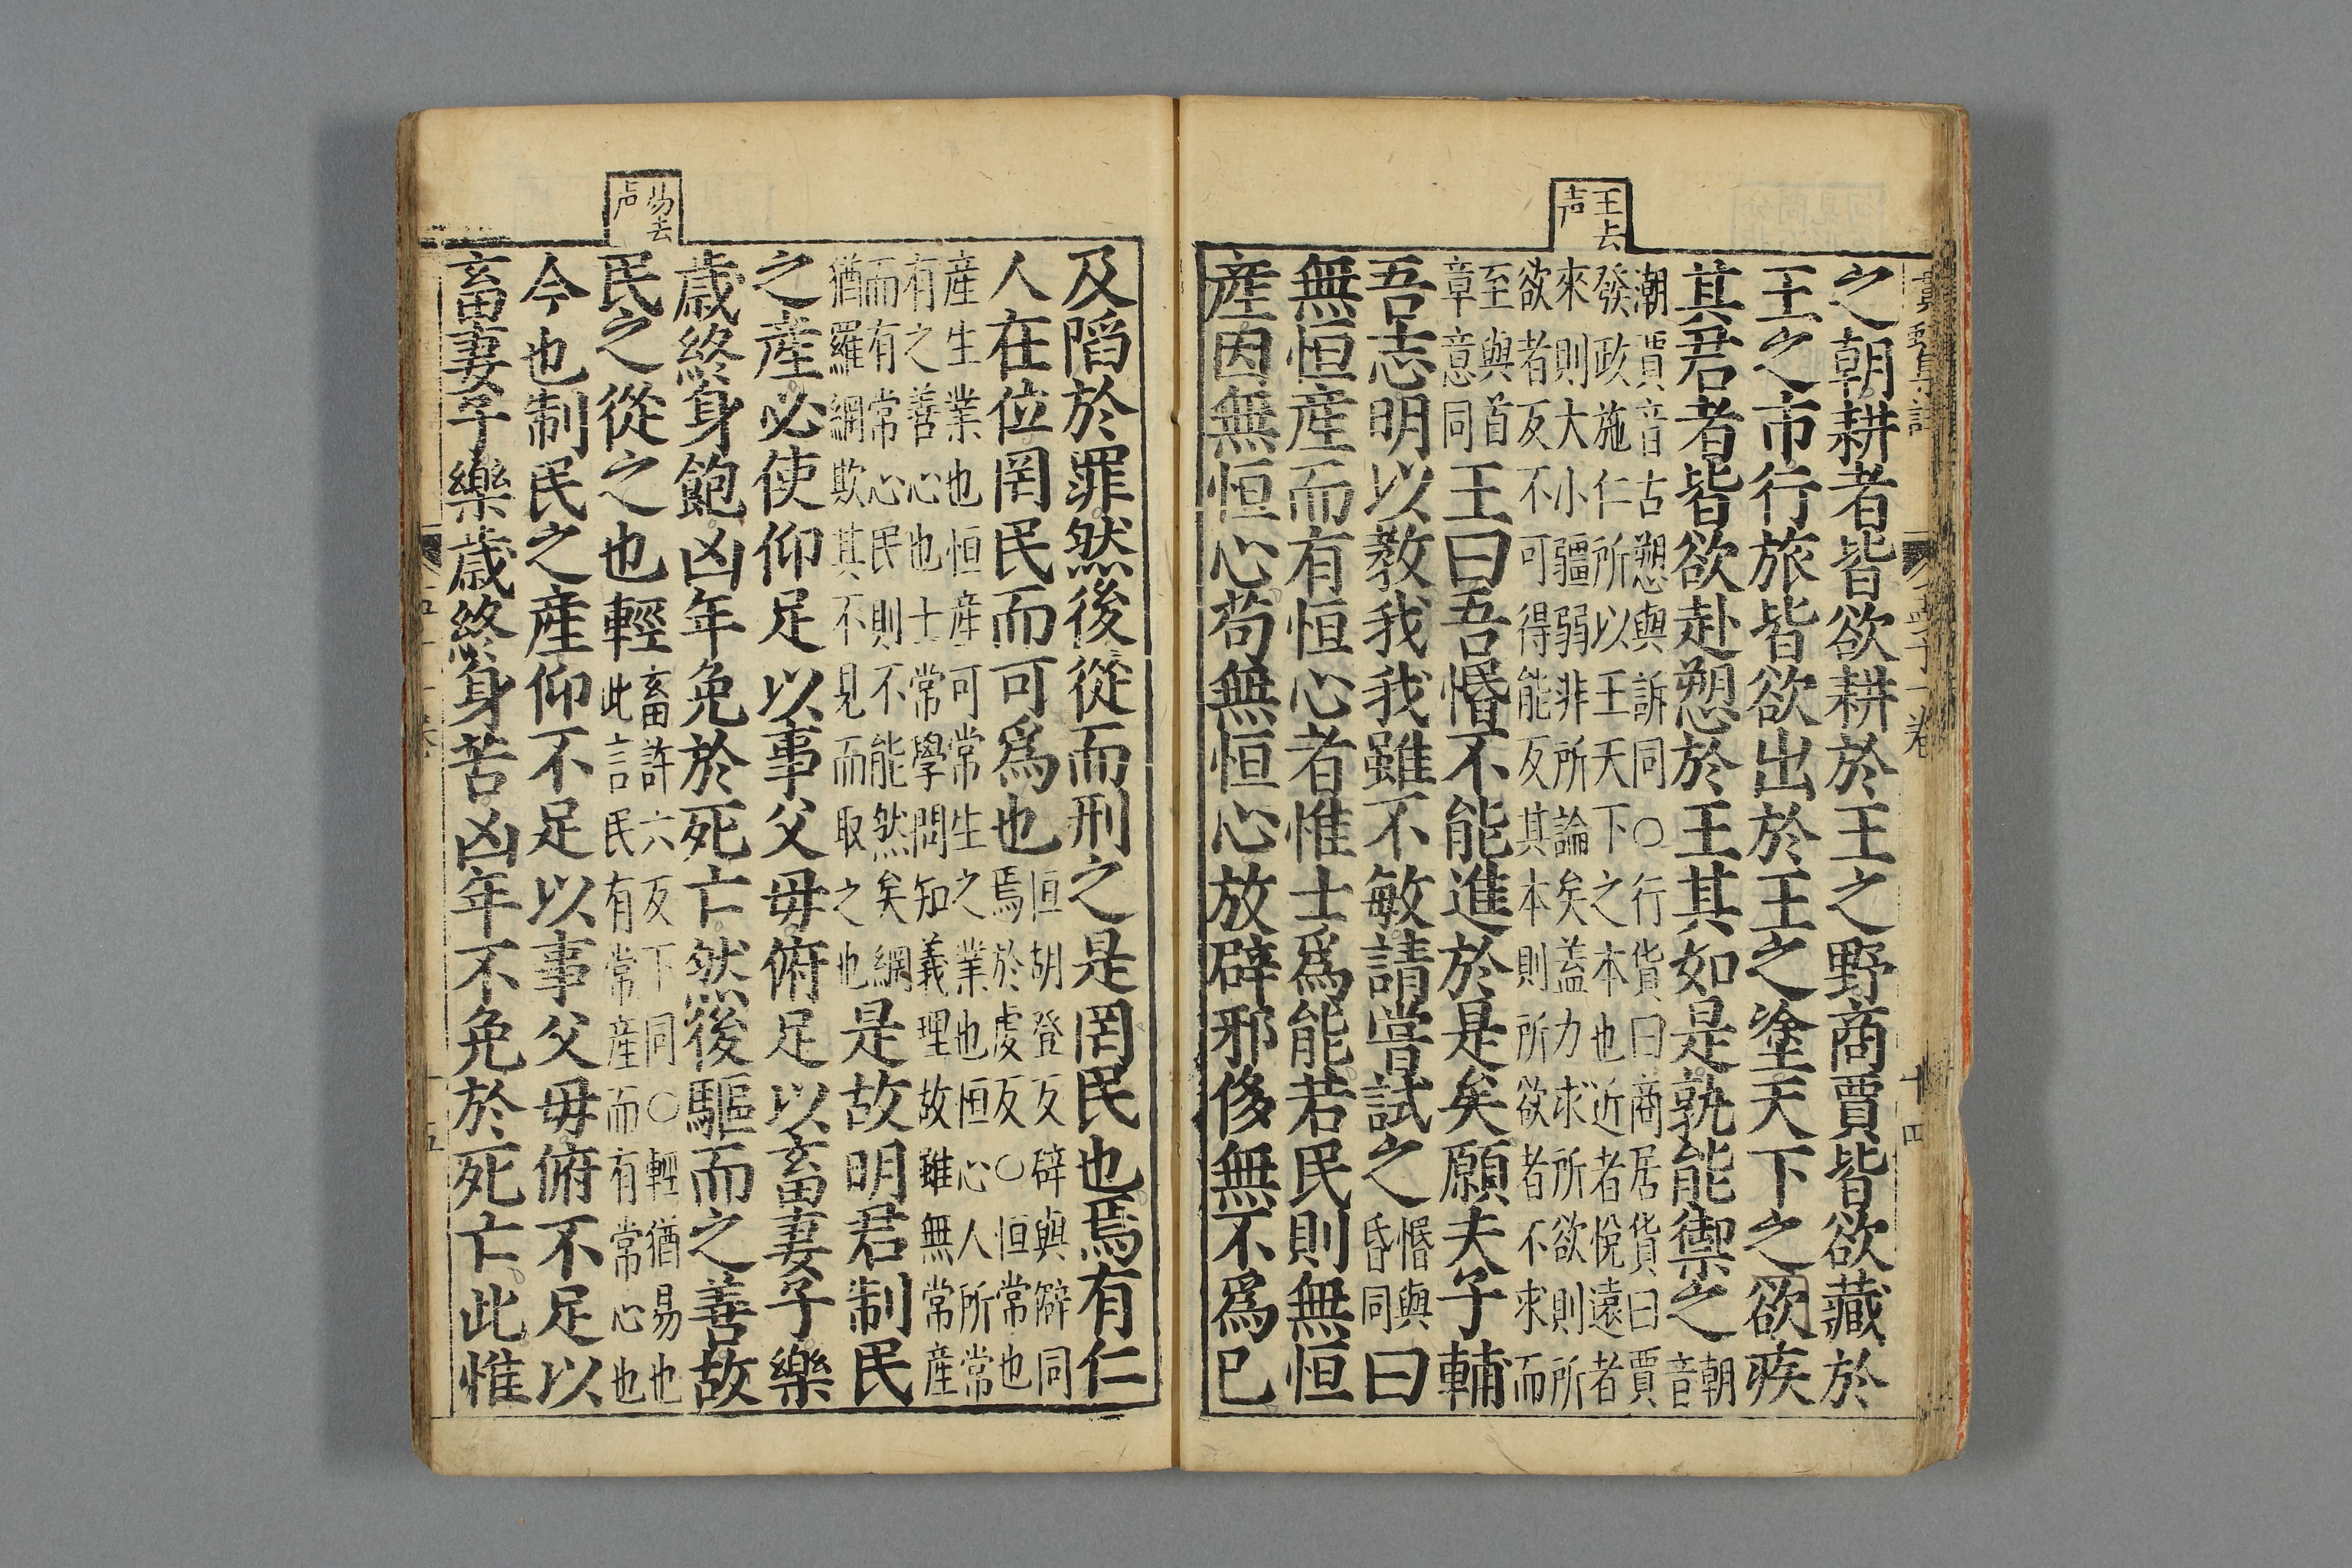 王去
声
之朝耕者皆欲耕於王之野商賈皆欲藏於
王之市行旅皆欲出於王之塗天下之欲疾
其君者皆欲赴愬於王其如是孰能禦之朝
音
潮賈音古愬與訴同○行貨曰商居貨曰賈
發政施仁所以王天下之本也近者悅遠者
來則大小疆弱非所論矣蓋力求所欲則所
欲者反不可得能反其本則所欲者不求而
至與首
章意同
王曰吾惽不能進於是矣願夫子輔
吾志明以教我我雖不敏請嘗試之
惽與
昏同
曰
無恒産而有恒心者惟士爲能若民則無恒
産因無恒心苟無恒心放辟邪侈無不爲已
孟子一卷
十四
易去
声
及陷於罪然後從而刑之是罔民也焉有仁
人在位罔民而可爲也
恒胡登反辟與僻同
焉於虔反○恒常也
産生業也恒産可常生之業也恒心人所常
有之善心也士常學問知義理故雖無常産
而有常心民則不能然矣網
猶羅網欺其不見而取之也
是故明君制民
之産必使仰足以事父毋俯足以畜妻子樂
歳終身飽凶年免於死亡然後驅而之善故
民之從之也輕
畜許六反下同○輕猶易也
此言民有常産而有常心也
今也制民之産仰不足以事父毋俯不足以
畜妻子樂歳終身苦凶年不免於死亡此惟